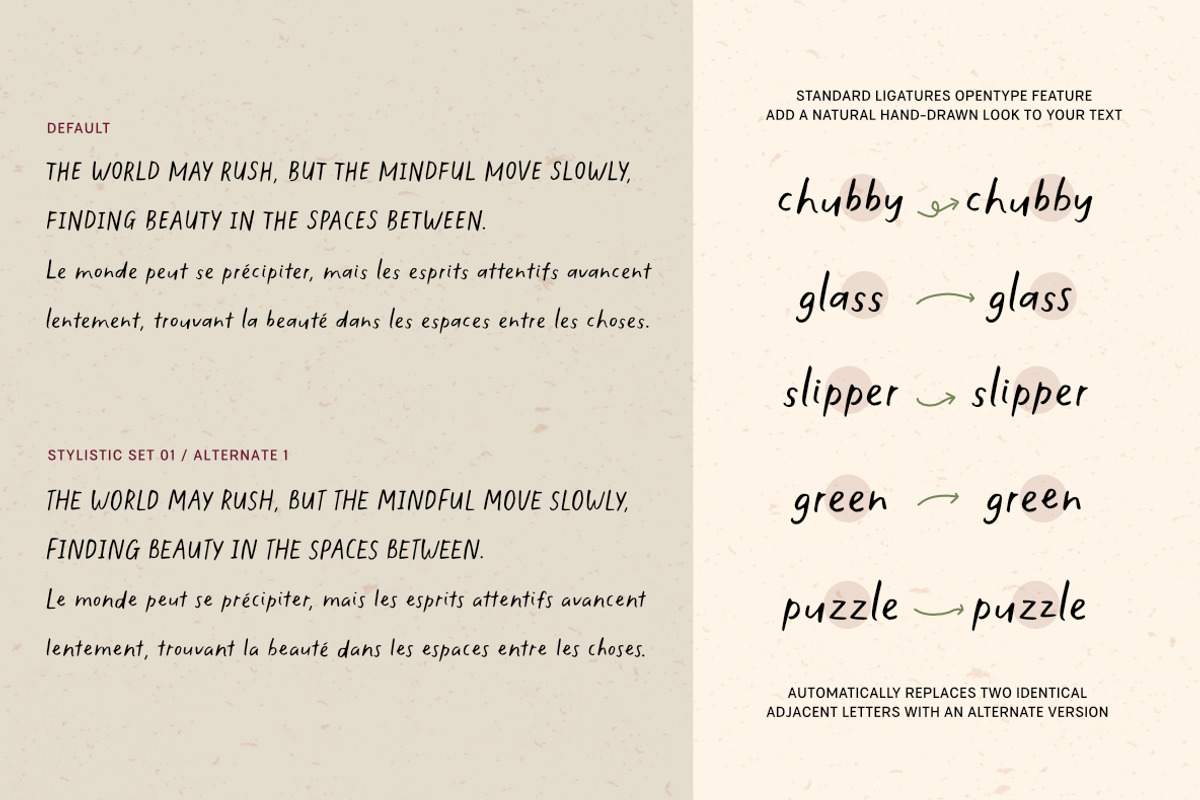 DEFAULT
THE WORLD MAY RUSH, BUT THE MINDFUL MOVE SLOWLY,
FINDING BEAUTY IN THE SPACES BETWEEN.
Le monde peut se précipiter, mais les esprits attentifs avancent
lentement, trouvant la beauté dans les espaces entre les choses.
STYLISTIC SET 01 / ALTERNATE 1
THE WORLD MAY RUSH, BUT THE MINDFUL MOVE SLOWLY,
FINDING BEAUTY IN THE SPACES BETWEEN.
Le monde peut se précipiter, mais les esprits attentifs avancent
lentement, trouvant la beauté dans les espaces entre les choses.
STANDARD LIGATURES OPENTYPE FEATURE
ADD A NATURAL HAND-DRAWN LOOK TO YOUR TEXT
chubby chubby
glass glass
slipper slipper
green green
puzzle puzzle
AUTOMATICALLY REPLACES TWO IDENTICAL
ADJACENT LETTERS WITH AN ALTERNATE VERSION